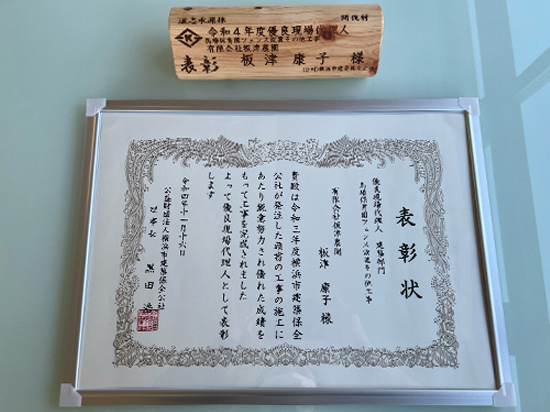 道志水源林 間伐材
令和4年度優良現場代理人
馬場保育園フェンス改良その他工事
有限会社板津農園
表彰 板津 康子 様
表彰状
優良現場代理人 建築部門
馬場保育園フェンス改良その他工事
有限会社板津農園
板津 康子 様
貴殿は令和三年度横浜市建築保全
公社が発注した頭書の工事の施工に
あたり鋭意努力され優れた成績を
もって工事を完成されました
よって優良現場代理人として表彰
します
令和四年十一月十六日
公益財団法人横浜市建築保全公社
理事長 黒田 浩